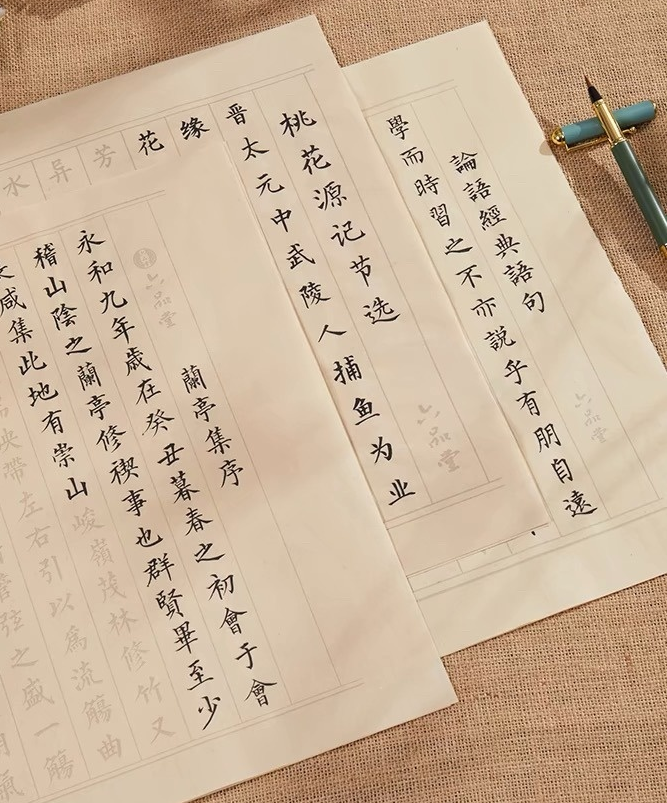 論語經典語句
學而時習之不亦説乎有朋自遠
六品堂
桃花源记节选
晋太元中武陵人捕鱼为业
缘
花
芳
异
水
六品堂
蘭亭集序
六品堂
永和九年歲在癸丑暮春之初會于會
稽山陰之蘭亭修禊事也群賢畢至少
咸集此地有崇山峻嶺茂林修竹又
映帶左右引以為流觴曲
管弦之盛一觴
氣